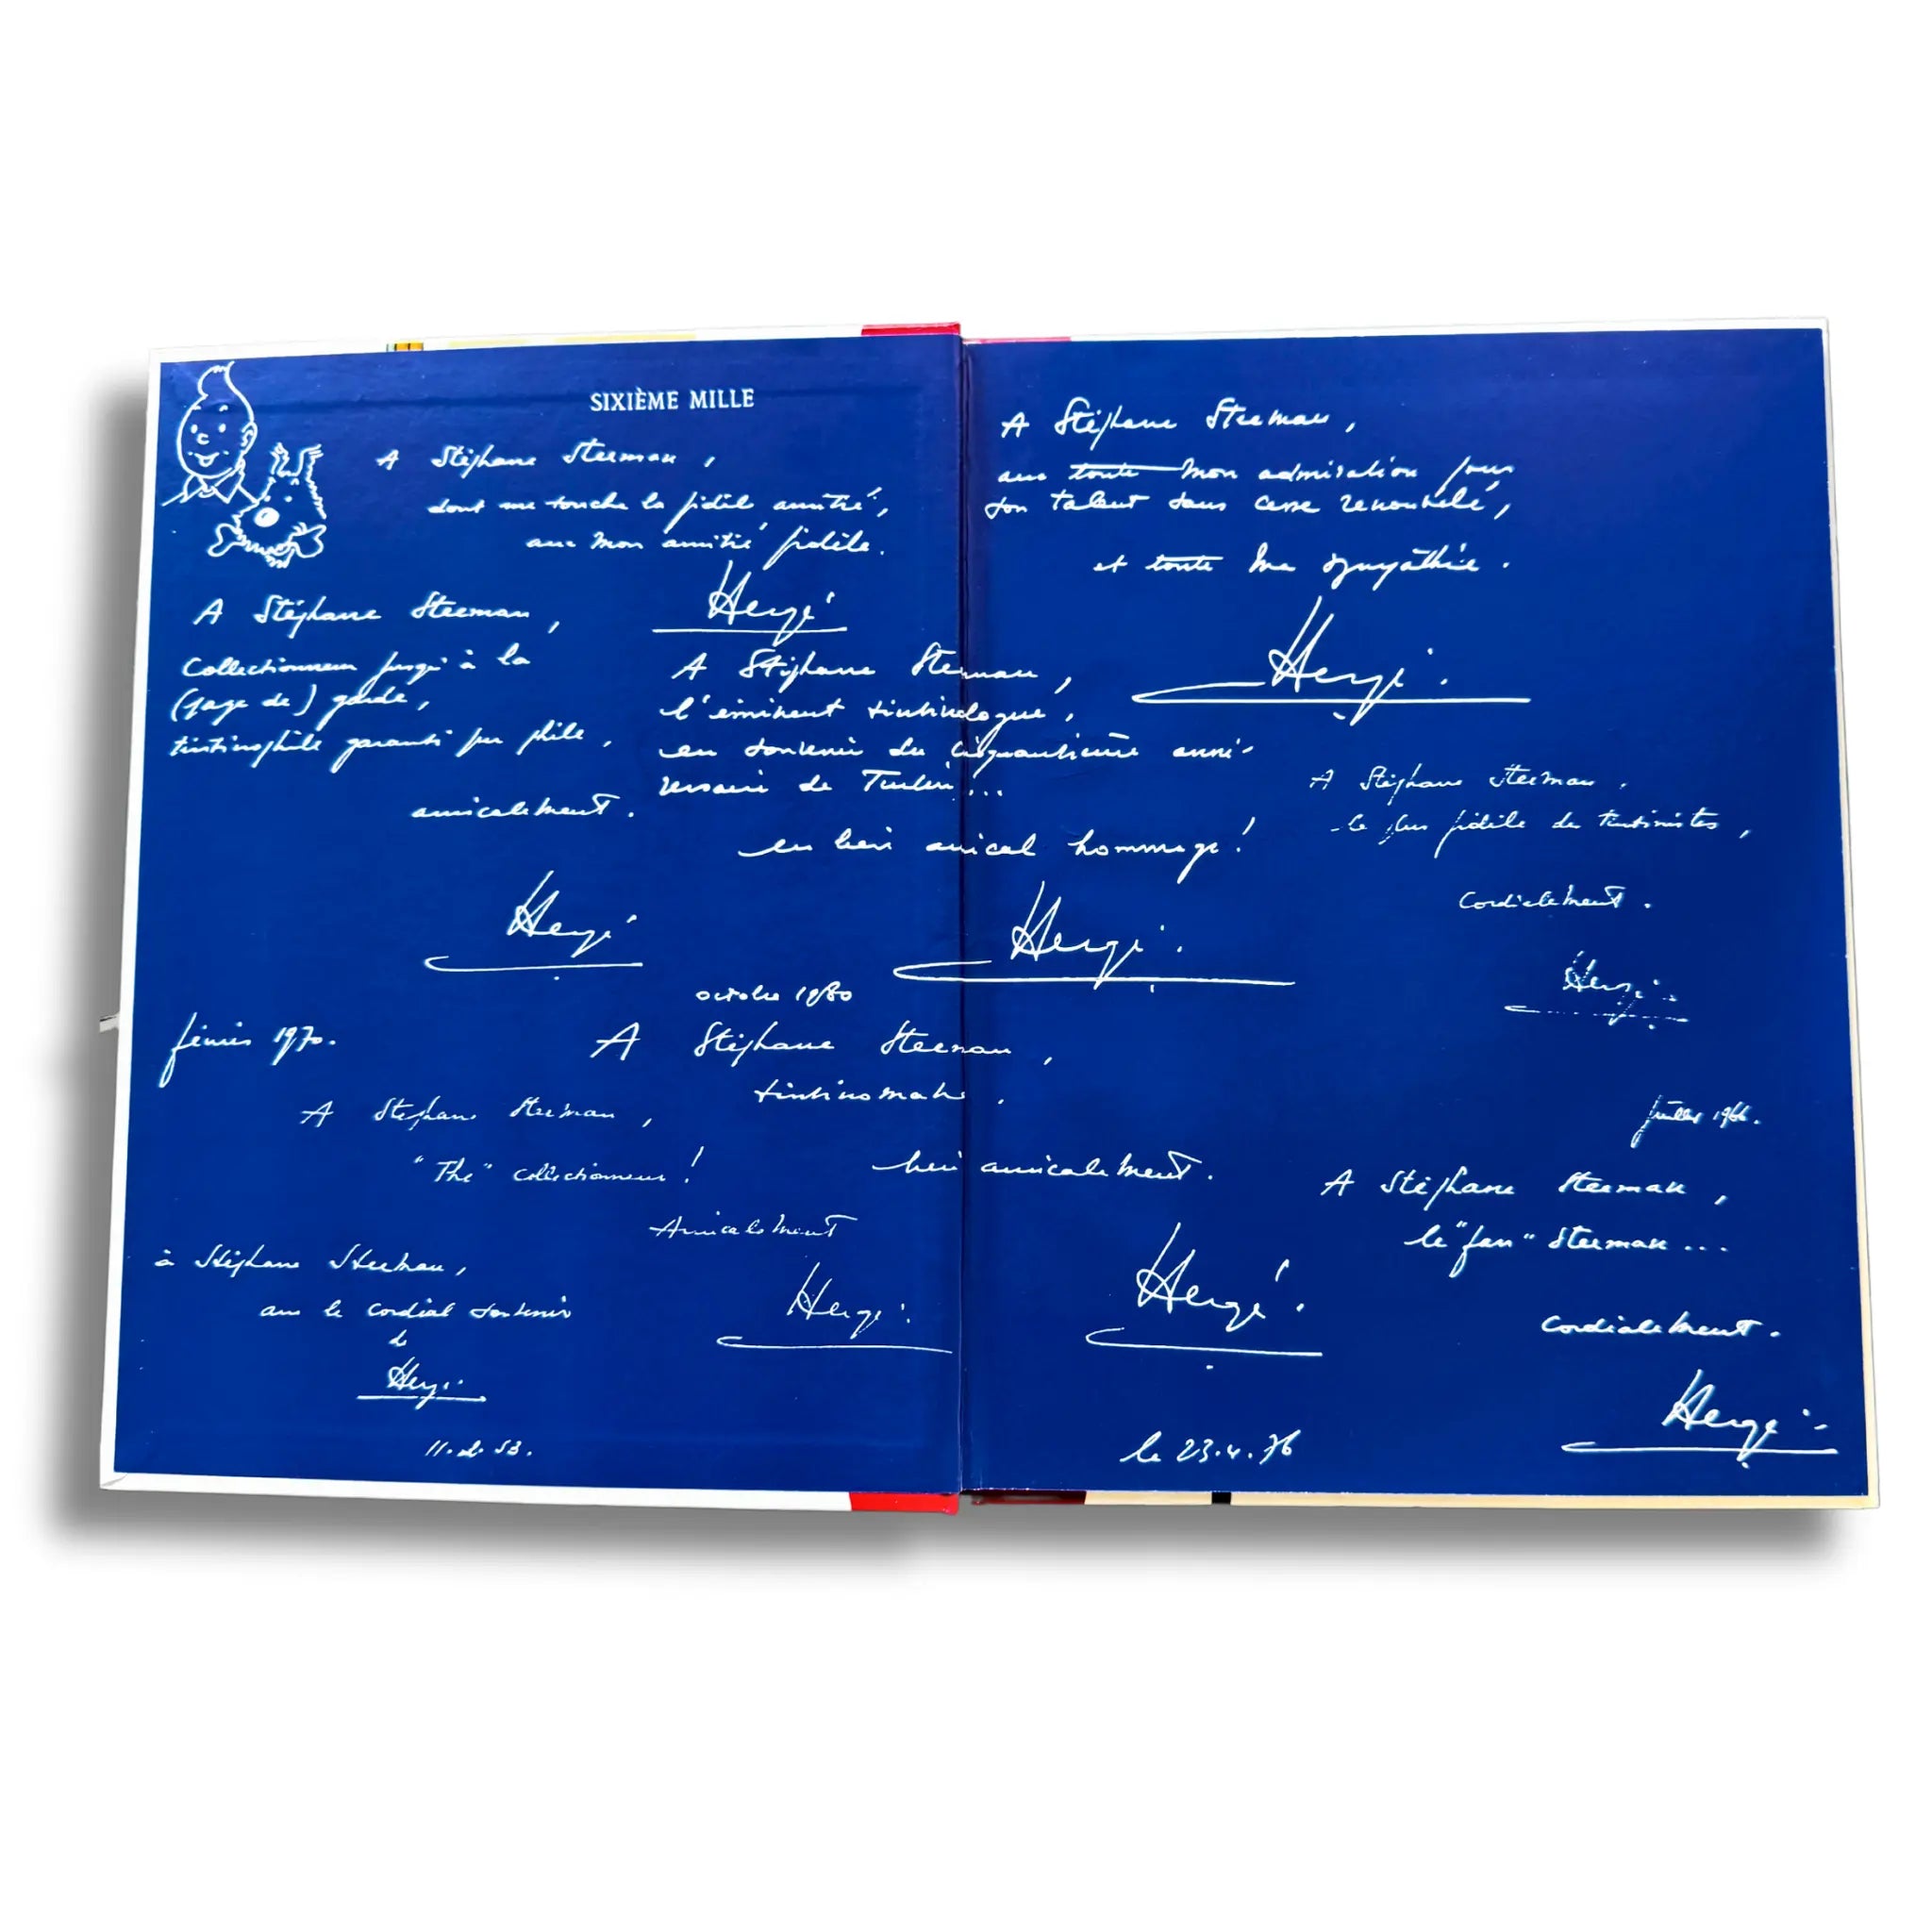 SIXIÈME MILLE
A Stéphane Steeman,
dont me touche la fidèle amitié,
avec mon amitié fidèle.
Hergé
A Stéphane Steeman,
Collectionneur jusqu'à la
(page de) garde,
tintinophile garanti pur phile,
amicalement.
Hergé
février 1970.
A Stéphane Steeman,
l'éminent tintinologue,
en souvenir du cinquantième anni-
versaire de Tintin...
en bien amical hommage!
Hergé
octobre 1980
A Stéphane Steeman,
"The" collectionneur!
Amicalement
Hergé
à Stéphane Steeman,
avec le cordial souvenir
de
Hergé
11.2.53.
A Stéphane Steeman,
avec toute mon admiration pour
son talent sans cesse renouvelé,
et toute ma sympathie.
Hergé
A Stéphane Steeman,
le plus fidèle des tintinistes,
Cordialement.
Hergé
A Stéphane Steeman,
tintinomane,
bien amicalement.
Hergé
le 23.4.76
1966.
A Stéphane Steeman,
le "fan" Steeman...
Cordialement.
Hergé